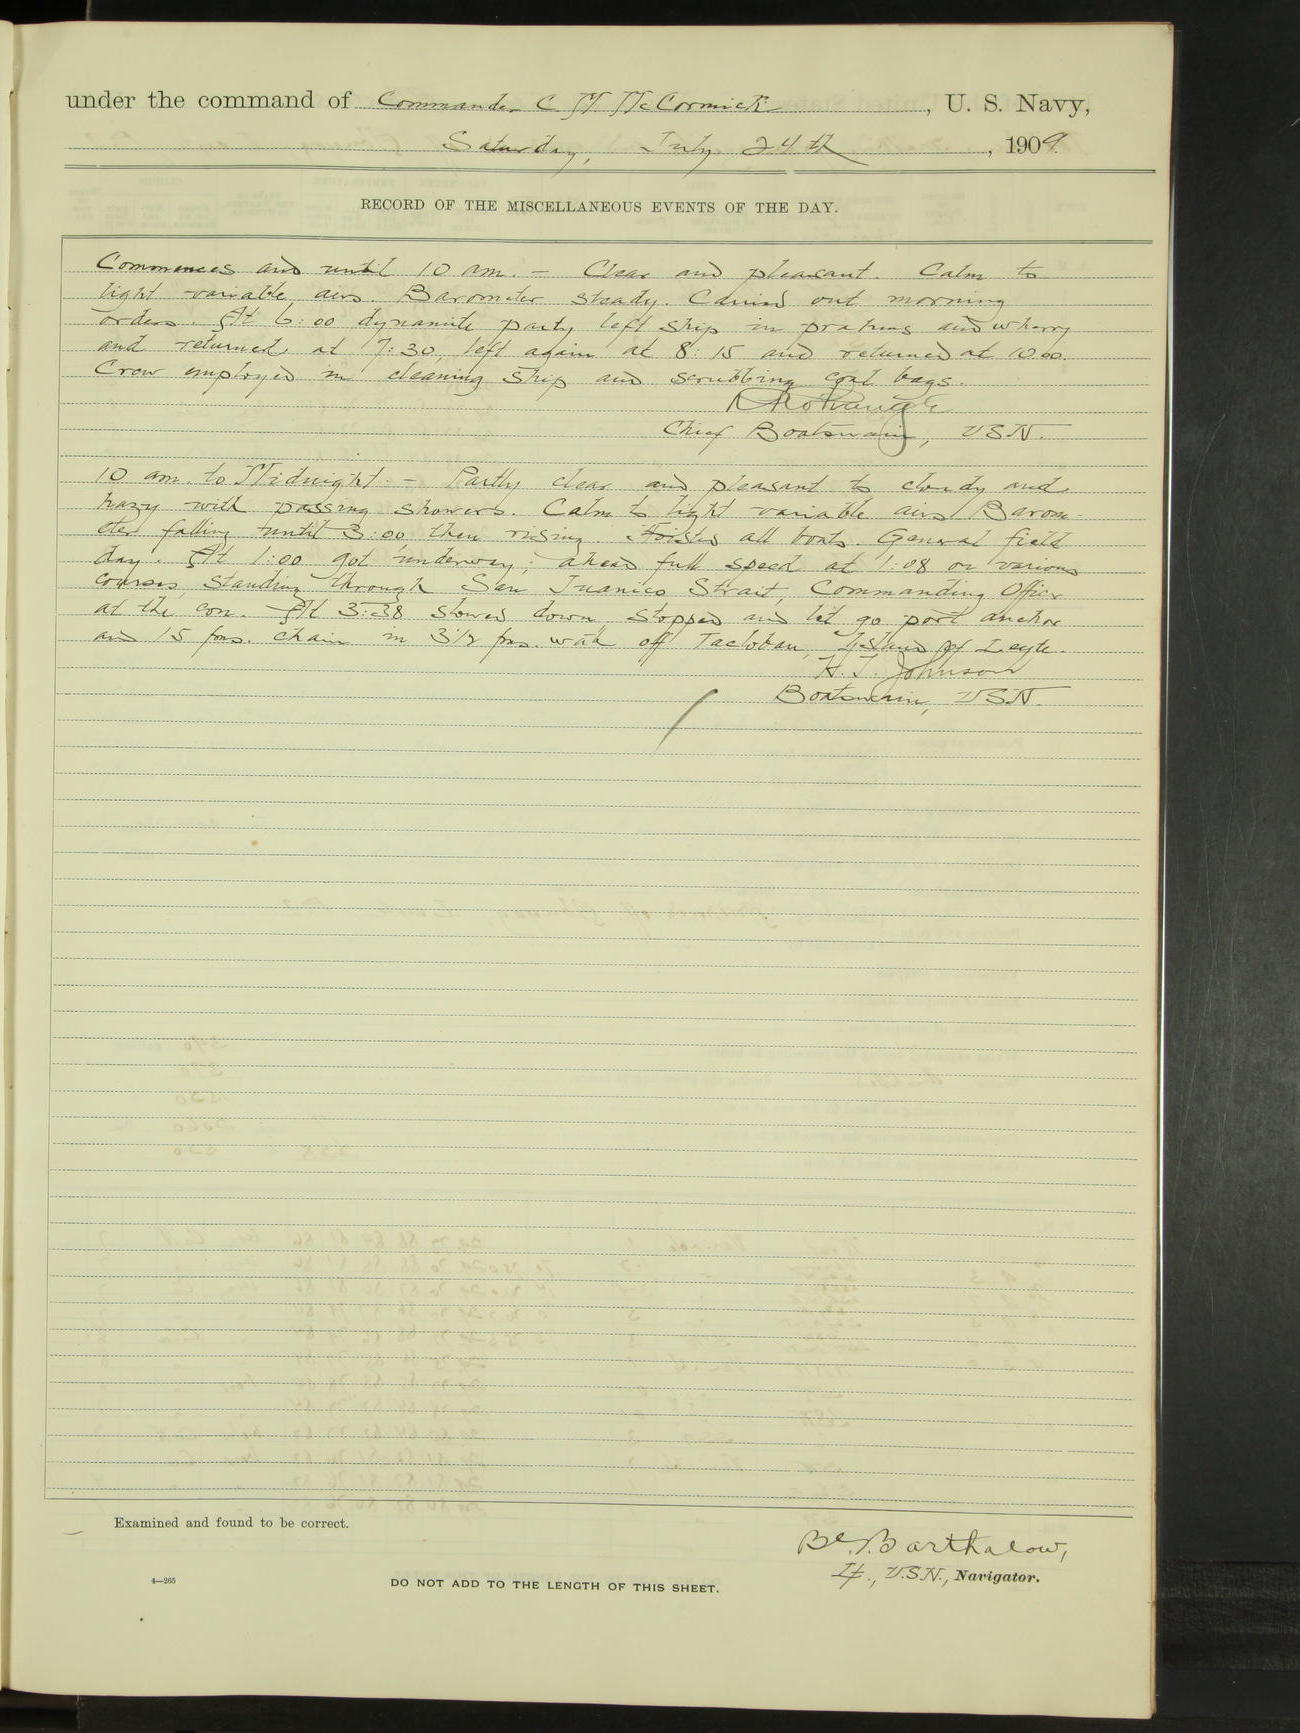 under the command of Commander C M McCormick, U. S. Navy,
Saturday, July 24th, 1909.
RECORD OF THE MISCELLANEOUS EVENTS OF THE DAY.
Commences and until 10 am. – Clear and pleasant. Calm to
light variable airs. Barometer steady. Carried out morning
orders. At 6:00 dynamite party left ship in prahms and wherry
and returned at 7:30, left again at 8:15 and returned at 10.00.
Crew employed in cleaning ship and scrubbing coal bags.
Chief Boatswain, USN.
10 am. to Midnight. – Partly clear and pleasant to cloudy and
hazy with passing showers. Calm to light variable airs Barom-
eter falling until 3:00 then rising. Hoisted all boats. General field
day. At 1:00 got underway; ahead full speed at 1:08 on various
courses, standing through San Juanico Strait, Commanding Officer
at the con. At 3:38 slowed down, stopped and let go port anchor
and 15 fms. chain in 3½ fms. water off Tacloban, Island of Leyte.
H. J. Johnson
Boatswain, USN.
Examined and found to be correct.
Barthalow,
Lt., U.S.N., Navigator.
4—265
DO NOT ADD TO THE LENGTH OF THIS SHEET.